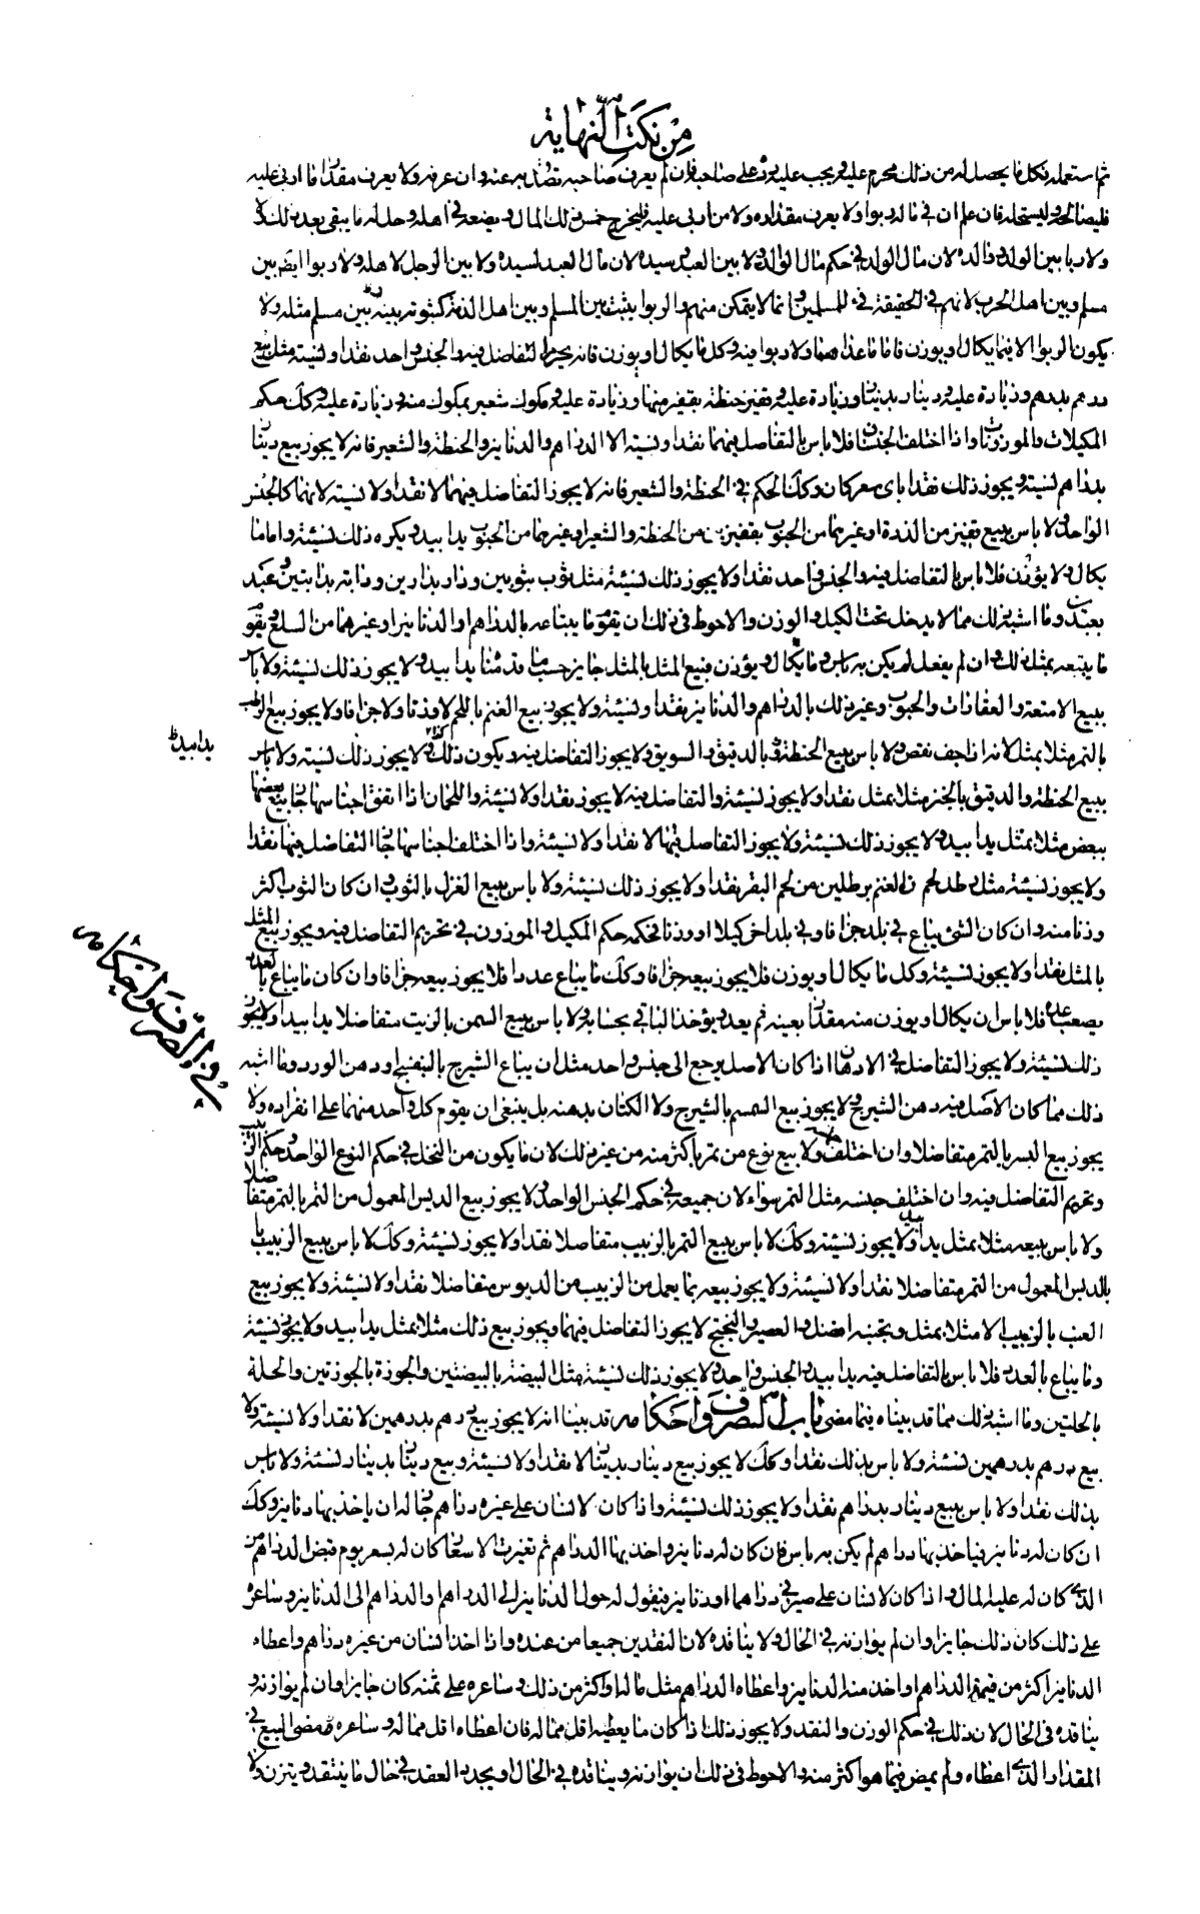 من نكت النهاية
ثم استعمله فكل ما يحصل له من ذلك محرم عليه ويجب عليه رده على صاحبه فان لم يعرف صاحبه تصدق به عنه وان عرفه ولا يعرف مقدار ما اربى عليه
فليصالحه وليستحله فان علم ان في ماله ربوا ولا يعرف مقداره ولا من اربى عليه فليخرج خمس ذلك المال ويضعه في اهله وحل له ما يبقى بعد ذلك
ولا ربا بين الولد ووالده لان مال الولد في حكم مال الوالد ولا بين العبد وسيده لان مال العبد لسيده ولا بين الرجل واهله ولا ربوا ايضا بين
مسلم وبين اهل الحرب لانهم في الحقيقة فيء للمسلمين وانما لا يتمكن منهم والربوا يثبت بين المسلم وبين اهل الذمة كثبوته بينه وبين مسلم مثله ولا
يكون الربوا الا فيما يكال او يوزن فاما ما عداهما فلا ربوا فيه وكل ما يكال او يوزن فانه يحرم التفاضل فيه والجنس واحد نقدا ونسية مثل بيع
درهم بدرهم وزيادة عليه ودينار بدينار وزيادة عليه وقفيز حنطة بقفيز منها وزيادة عليه ومكوك شعير بمكوك منه وزيادة عليه وكذلك حكم
المكيلات والموزونات واذا اختلف الجنسان فلا باس بالتفاضل فيهما نقدا ونسية الا الدراهم والدنانير والحنطة والشعير فانه لا يجوز بيع دينار
بدراهم نسية ويجوز ذلك نقدا باى سعر كان وكذلك الحكم في الحنطة والشعير فانه لا يجوز التفاضل فيهما لا نقدا ولا نسية لانهما كالجنس
الواحد ولا باس ببيع قفيز من الذرة او غيرها من الحبوب بقفيزين من الحنطة والشعير او غيرهما من الحبوب يدا بيد ويكره ذلك نسيئة واما ما لا
يكال ولا يوزن فلا باس بالتفاضل فيه والجنس واحد نقدا ولا يجوز ذلك نسيئة مثل ثوب بثوبين ودار بدارين ودابة بدابتين وعبد
بعبدين وما اشبه ذلك مما لا يدخل تحت الكيل والوزن والاحوط في ذلك ان يقوم ما يبتاعه بالدراهم او الدنانير او غيرهما من السلع ويقوم
ما يبيعه بمثل ذلك وان لم يفعل لم يكن به باس وما يكال ويوزن فبيع المثل بالمثل جايز حسب ما قدمناه يدا بيد ولا يجوز ذلك نسيئة ولا باس
ببيع الامتعة والعقارات والحبوب وغير ذلك بالدراهم والدنانير نقدا ونسيئة ولا يجوز بيع الغنم باللحم لا وزنا ولا جزافا ولا يجوز بيع الرطب
بالتمر مثلا بمثل لانه اذا جف نقص ولا باس ببيع الحنطة بالدقيق والسويق ولا يجوز التفاضل فيه ويكون ذلك نقدا ولا يجوز ذلك نسية ولا باس
يدا بيد
ببيع الحنطة والدقيق بالخبز مثلا بمثل نقدا ولا يجوز نسيئة والتفاضل فيه لا يجوز نقدا ولا نسيئة واللحمان اذا اتفق اجناسها جاز بيع بعضها
ببعض مثلا بمثل يدا بيد ولا يجوز ذلك نسيئة ولا يجوز التفاضل فيها لا نقدا ولا نسيئة واذا اختلف اجناسها جاز التفاضل فيها نقدا
ولا يجوز نسيئة مثل رطل لحم من الغنم برطلين من لحم البقر نقدا ولا يجوز ذلك نسيئة ولا باس ببيع الغزل بالثوب وان كان الثوب اكثر
وزنا منه وان كان الشئ يباع في بلد جزافا وفي بلد اخر كيلا او وزنا فحكمه حكم المكيل والموزون في تحريم التفاضل فيه ويجوز بيع المثل
بالمثل نقدا ولا يجوز نسيئة وكل ما يكال او يوزن فلا يجوز بيعه جزافا وكذلك ما يباع عددا فلا يجوز بيعه جزافا وان كان ما يباع بالعدد
يصعب عده فلا باس ان يكال او يوزن منه مقدار بعينه ثم يعد ويؤخذ الباقي بحسابه ولا باس ببيع السمن بالزيت متفاضلا يدا بيد ولا يجوز
في الصرف واحكامه
ذلك نسيئة ولا يجوز التفاضل في الادهان اذا كان الاصل يرجع الى جنس واحد مثل ان يباع الشيرج بالبنفسج او دهن الورد وما اشبه
ذلك مما كان الاصل فيه دهن الشيرج ولا يجوز بيع السمسم بالشيرج ولا الكتان بدهنه بل ينبغى ان يقوم كل واحد منهما على انفراده ولا
يجوز بيع البسر بالتمر متفاضلا وان اختلف ولا بيع نوع من تمر باكثر منه من غير ذلك لان ما يكون من النخل في حكم النوع الواحد وحكم الزبيب
وتحريم التفاضل فيه وان اختلف جنسه مثل التمر سواء لان جميعه في حكم الجنس الواحد ولا يجوز بيع الدبس المعمول من التمر بالتمر متفاضلا
ولا باس ببيعه مثلا بمثل يدا بيد ولا يجوز نسيئة وكذلك لا باس ببيع التمر بالزبيب متفاضلا نقدا ولا يجوز نسيئة وكذلك لا باس ببيع الزبيب
بالدبس المعمول من التمر متفاضلا نقدا ولا نسيئة ولا يجوز بيعه بما يعمل من الزبيب من الدبوس متفاضلا نقدا ولا نسيئة ولا يجوز بيع
العنب بالزبيب الا مثلا بمثل وتجنبه افضل والعصير والبختج لا يجوز التفاضل فيهما ويجوز بيع ذلك مثلا بمثل يدا بيد ولا يجوز نسيئة
وما يباع بالعدد فلا باس بالتفاضل فيه يدا بيد والجنس واحد ولا يجوز ذلك نسيئة مثل البيضة بالبيضتين والجوزة بالجوزتين والحلة
بالحلتين وما اشبه ذلك مما قد بيناه فيما مضى باب الصرف واحكامه قد بينا انه لا يجوز بيع درهم بدرهمين لا نقدا ولا نسيئة ولا
بيع درهم بدرهمين نسيئة ولا باس بذلك نقدا وكذلك لا يجوز بيع دينار بدينارين لا نقدا ولا نسيئة وبيع دينار بدينار نسئة ولا باس
بذلك نقدا ولا باس ببيع دينار بدراهم نقدا ولا يجوز ذلك نسيئة واذا كان لانسان على غيره دراهم جاز له ان ياخذ بها دنانير وكذلك
ان كان له دنانير فياخذ بها دراهم لم يكن به باس فان كان له دنانير واخذ بها الدراهم ثم تغيرت الاسعار كان له بسعر يوم قبض الدراهم من
الذي كان له عليه المال واذا كان لانسان على صيرفي دراهم او دنانير فيقول له حول الدنانير الى الدراهم والدراهم الى الدنانير وساعره
على ذلك كان ذلك جايزا وان لم يوازنه في الحال ولا يناقده لان النقدين جميعا من عنده واذا اخذ انسان من غيره دراهم واعطاه
الدنانير اكثر من قيمة الدراهم او اخذ منه الدنانير واعطاه الدراهم مثل ماله او اكثر من ذلك وساعره على ثمنه كان جايزا وان لم يوازنه و
يناقده في الحال لان ذلك في حكم الوزن والنقد ولا يجوز ذلك اذا كان ما يعطيه اقل مما له فان اعطاه اقل مما له وساعره مضى البيع في
المقدار الذي اعطاه ولم يمض فيما هو اكثر منه والاحوط في ذلك ان يوازنه ويناقده في الحال او يجدد العقد في حال ما ينتقد ويتزن ولا